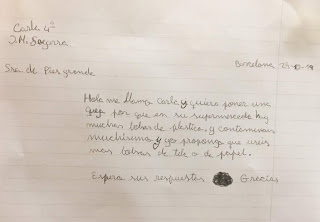 Carla 4º
J.M. Segarra
Barcelona 23-10-19
Sra. de Pies grande
Hola me llama Carla y quiero poner una
queja por que en su supermercado hay
muchas bolsas de plastico, y contaminan
muchísimo y yo propongo que useis
mas bolsas de tela o de papel.
Espero sus respuestas Gracias